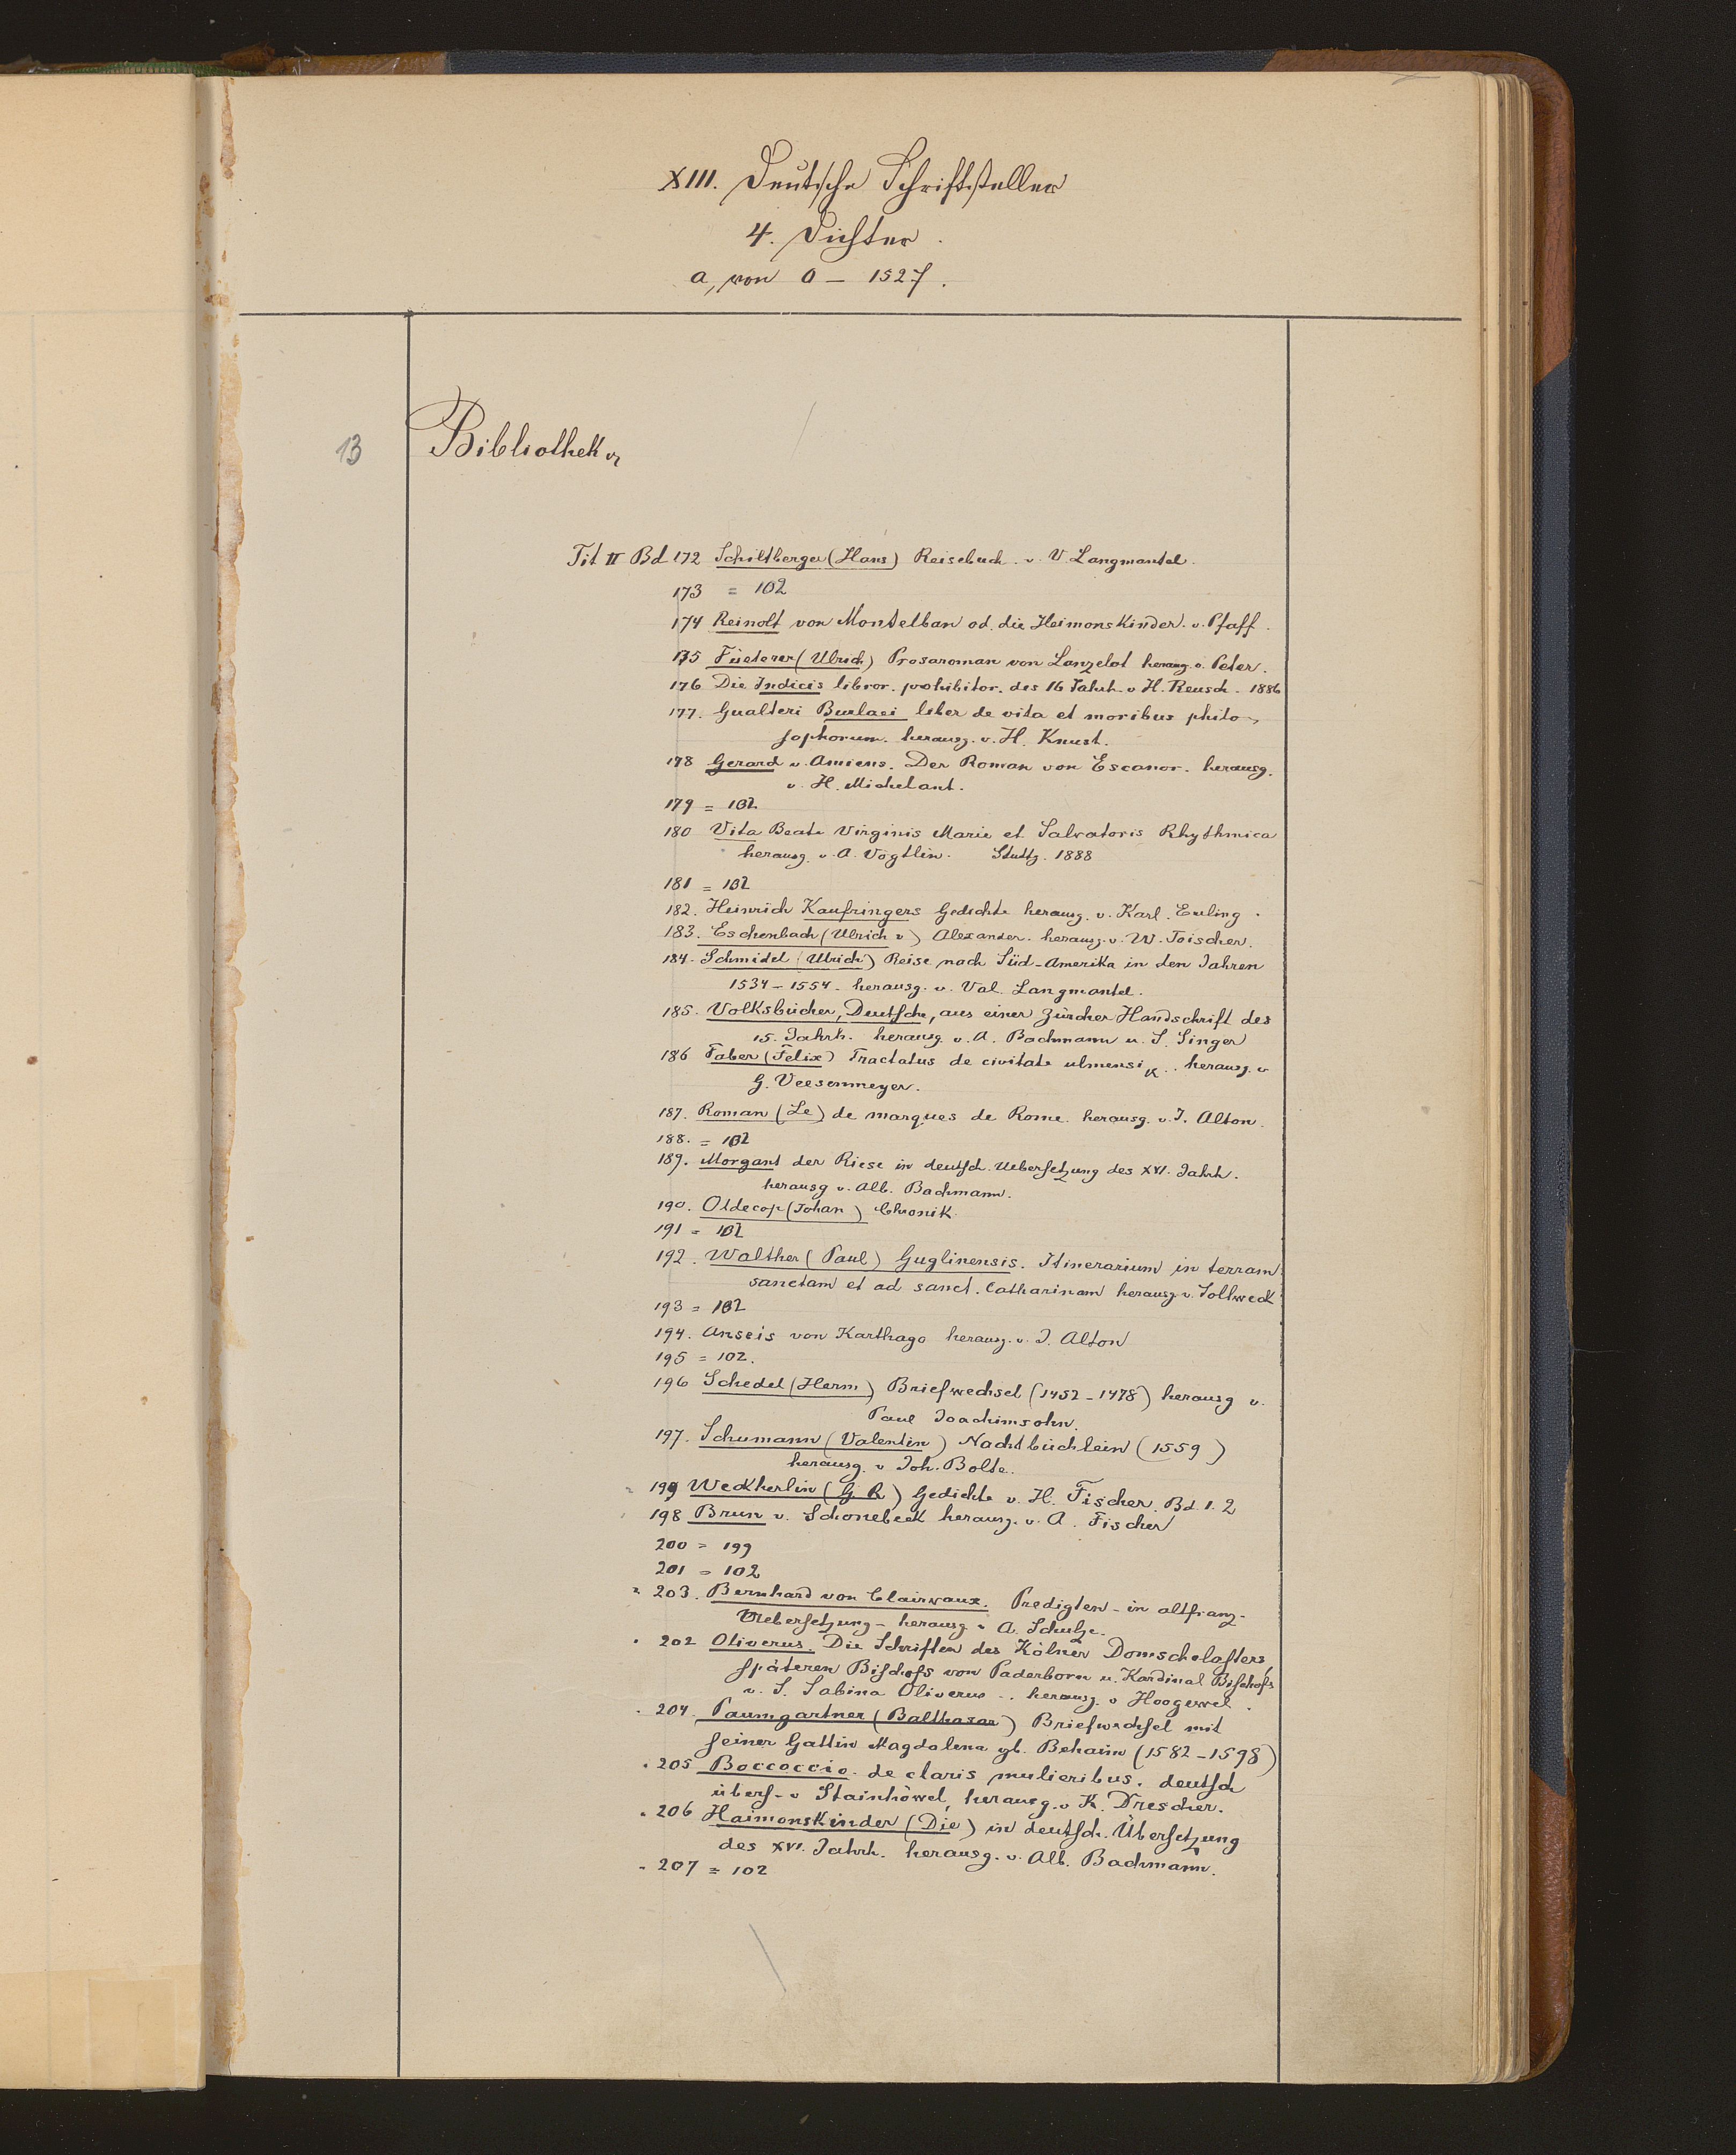 XIII. Deutsche Schriftsteller
4. Dichter.
a, von 0 – 1527.
13
Bibliothek
Tit II Bd 172 Schiltberger (Hans) Reisebuch. v. V. Langmantel.
173 = 102
174 Reinolt von Montelban od. die Heimonskinder. v. Pfaff.
175 Füeterer (Ulrich) Prosaroman von Lanzelot herausg. v. Peter.
176 Die Indicis libror. prohibitor. des 16 Jahrh. v H. Reusch. 1886
177. Gualteri Burlaei liber de vita et moribus philo-
sophorum. herausg. v. H. Knust.
178 Gerard v. Amiens. Der Roman von Escanor. herausg.
v. H. Michelant.
179 = 102
180 Vita Beate Virginis Marie et Salvatoris Rhythmica
herausg. v. A. Vögtlin. Stuttg. 1888
181 = 102
182. Heinrich Kaufringers Gedichte herausg. v. Karl. Euling.
183. Eschenbach (Ulrich v) Alexander. herausg. v. W. Toischer.
184. Schmidel (Ulrich) Reise nach Süd-Amerika in den Jahren
1534 – 1554. herausg. v. Val. Langmantel.
185. Volksbücher, Deutsche, aus einer Zürcher Handschrift des
15. Jahrh. herausg. v. A. Bachmann u. S. Singer
186 Faber (Felix) Tractatus de civitate ulmensi .. herausg. v
G. Veesenmeyer.
187. Roman (Le) de marques de Rome. herausg. v. J. Alton.
188. = 102
189. Morgant der Riese in deutsch. Uebersetzung des XVI. Jahrh.
herausg v. Alb. Bachmann.
190. Oldecop (Johan) Chronik.
191 = 102
192. Walther (Paul) Guglinensis. Itinerarium in terram
sanctam et ad sanct. Catharinam herausg. v. Sollweck
193 = 102
194. Anseis von Karthago herausg. v. J. Alton
195 = 102.
196 Schedel (Herm) Briefwechsel (1452 – 1478) herausg v.
Paul Joachimsohn.
197. Schumann (Valentin) Nachtbüchlein (1559)
herausg. v Joh. Bolte.
199 Weckherlin (G. R) Gedichte v. H. Fischer. Bd. 1. 2
198 Brun v. Schonebeck herausg. v. A. Fischer
200 = 199
201 = 102
203. Bernhard von Clairvaux. Predigten – in altfranz.
Uebersetzung – herausg v A. Schulze.
202 Oliverus. Die Schriften des Kölner Domscholasters,
späteren Bischofs von Paderborn u. Kardinal Bischofs
v. S. Sabina Oliverus .. herausg. v Hoogeweg.
204. Paumgartner (Balthasar) Briefwechsel mit
seiner Gattin Magdalena gb. Behaim (1582 – 1598)
205 Boccoccio. de claris mulieribus. deutsch
übers. v Stainhöwel, herausg. v K. Drescher.
206 Haimonskinder (Die) in deutsch. Übersetzung
des XVI. Jahrh. herausg. v. Alb. Bachmann.
207 = 102